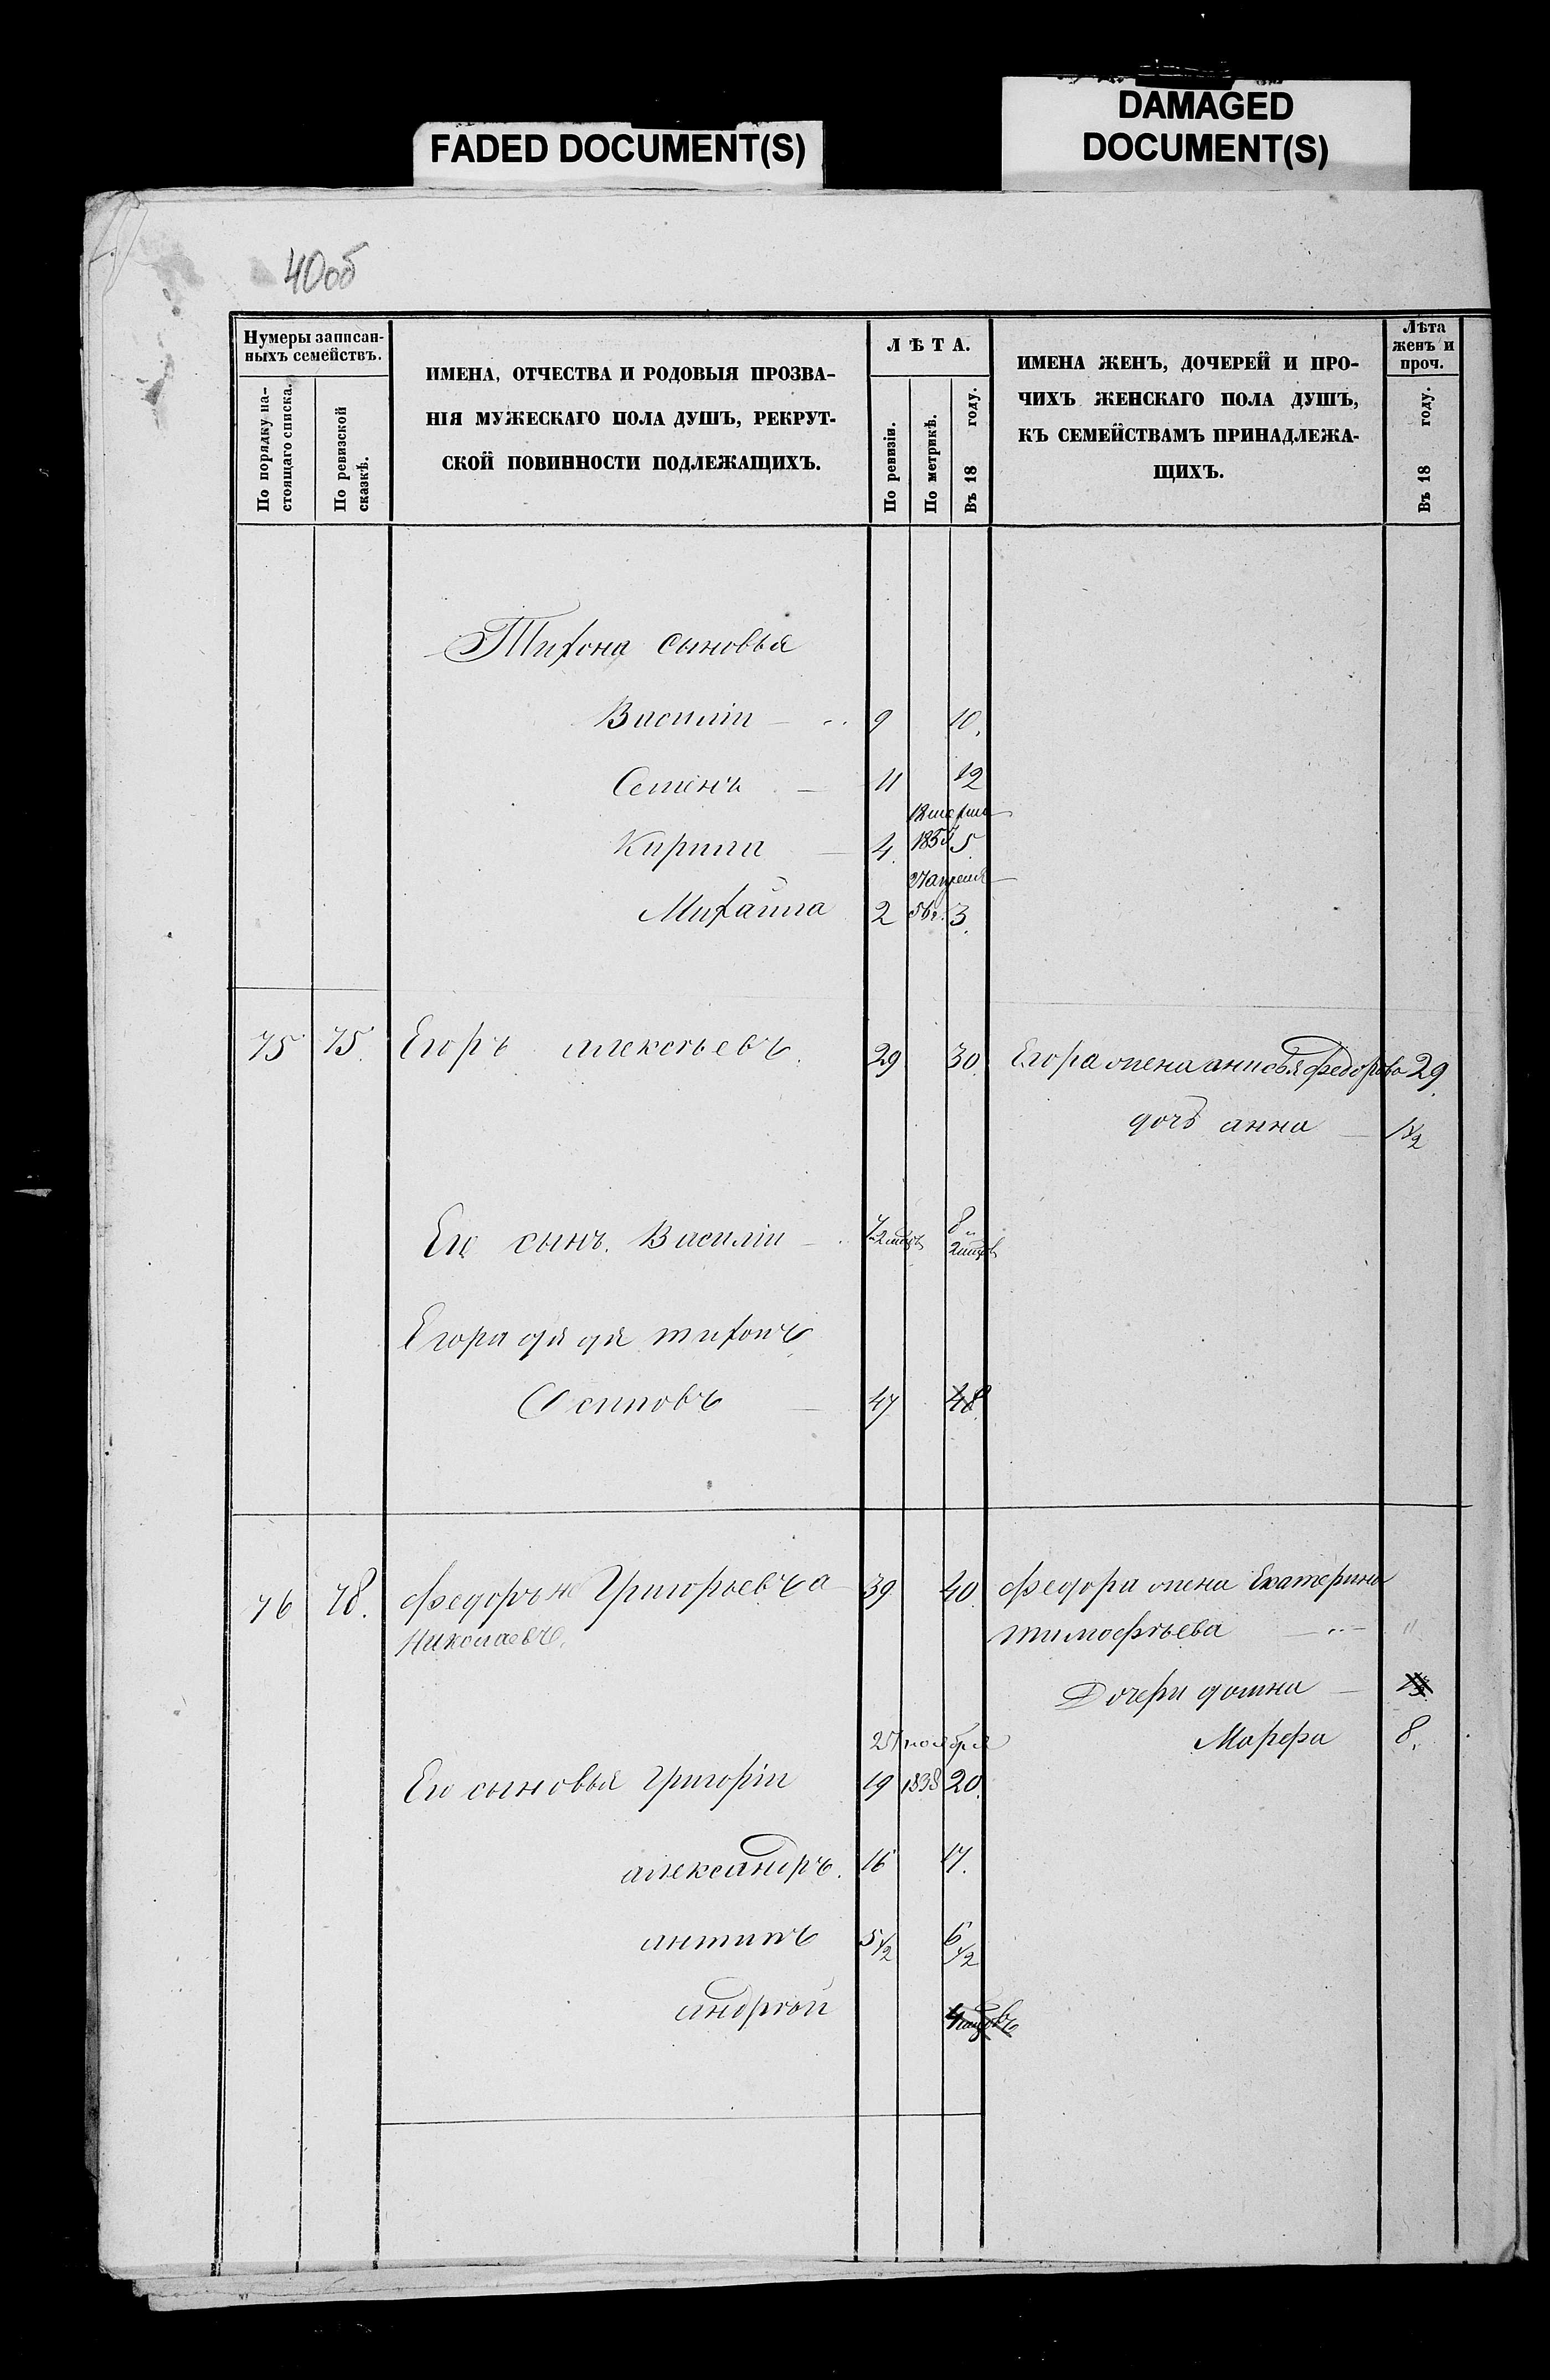 FADED DOCUMENT(S)
DAMAGED
DOCUMENT(S)
40об
Нумеры записан-
ныхъ семействъ.
По порядку на-
стоящаго списка.
По ревизской
сказкѣ.
ИМЕНА, ОТЧЕСТВА И РОДОВЫЯ ПРОЗВА-
НІЯ МУЖЕСКАГО ПОЛА ДУШЪ, РЕКРУТ-
СКОЙ ПОВИННОСТИ ПОДЛЕЖАЩИХЪ.
ЛѢТА.
По ревизіи.
По метрикѣ.
Въ 18 году.
ИМЕНА ЖЕНЪ, ДОЧЕРЕЙ И ПРО-
ЧИХЪ ЖЕНСКАГО ПОЛА ДУШЪ,
КЪ СЕМЕЙСТВАМЪ ПРИНАДЛЕЖА-
ЩИХЪ.
Лѣта
женъ и
проч.
Въ 18 году.
Тихона сыновья
Василіи 9 10.
Семенъ 11 12
Кирила 4. 5
27 апреля
Михаила 2 56г. 3.
75 75. Егоръ алексѣевъ. 29 30. Егора жена анисья федорова 29.
дочь анна 1 1/2
Его сынъ Василіи 7 2 мцъ 8 и 2 мцъ
Егора дядя тихонъ
Осиповъ 47 48
76 78. федоръ Григорьевъ 39 40. федора жена Екатерина
Николаевъ. тимофѣева "
Дочери домна
Марфа 8.
25 ноября
Его сыновья Григоріи 19 1838 20.
александръ. 16 17.
антипъ 5 1/2 6 1/2
андрѣй